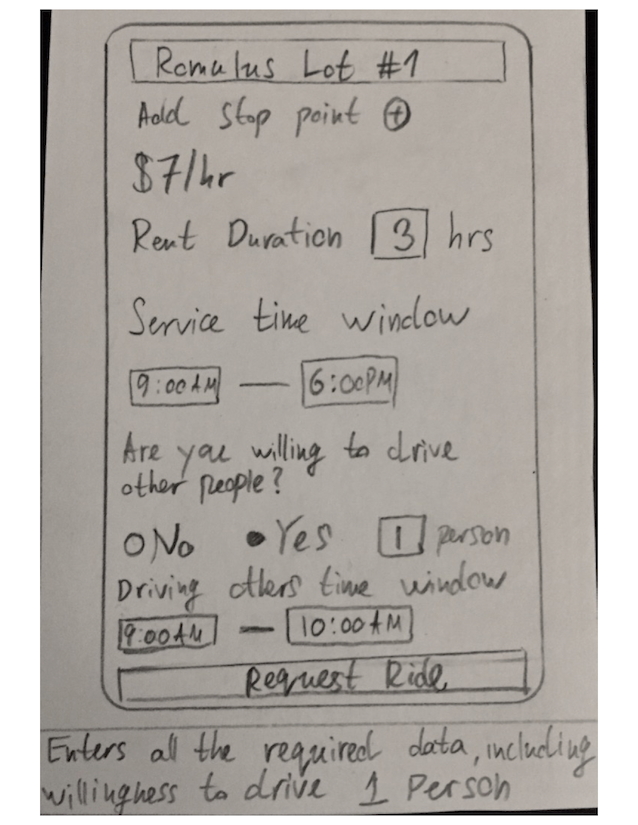 Romulus Lot #1
Add stop point ⊕
$7/hr
Rent Duration 3 hrs
Service time window
9:00AM — 6:00PM
Are you willing to drive
other people?
No Yes 1 person
Driving others time window
9:00AM — 10:00AM
Request Ride
Enters all the required data, including
willingness to drive 1 Person